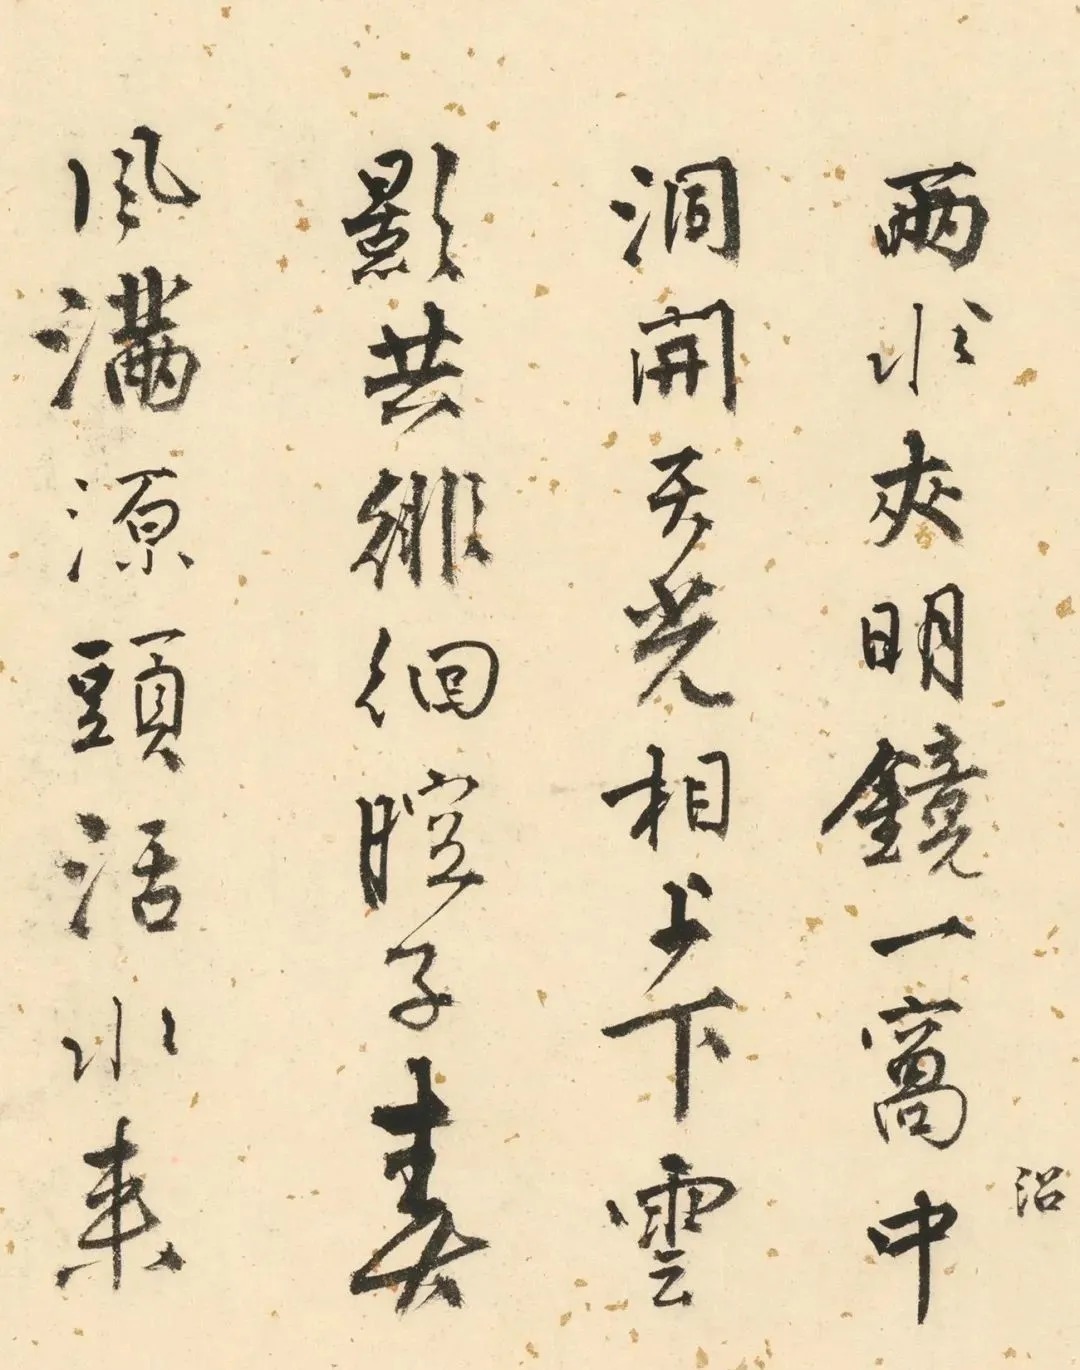 沼
兩水夾明鏡一窩中
洞開天光相上下雲
影共徘徊腔子春
風滿源頭活水來